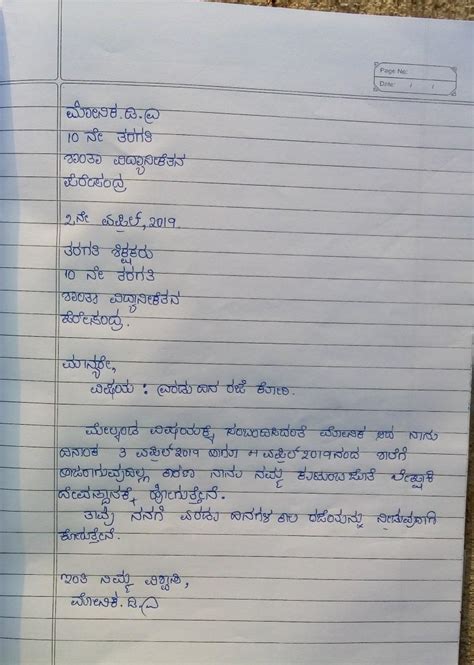 Page No:
Date: / /
ಮೋನಿಕ. ಡಿ.
10 ನೇ ತರಗತಿ
ಶಾಂತಾ ವಿದ್ಯಾನಿಕೇತನ
ಪೆರೇಸಂದ್ರ
2ನೇ ಏಪ್ರಿಲ್, 2019.
ತರಗತಿ ಶಿಕ್ಷಕರು
10 ನೇ ತರಗತಿ
ಶಾಂತಾ ವಿದ್ಯಾನಿಕೇತನ
ಪೆರೇಸಂದ್ರ.
ಮಾನ್ಯರೇ,
ವಿಷಯ : ಎರಡು ದಿನ ರಜೆ ಕೋರಿ.
ಮೇಲ್ಕಂಡ ವಿಷಯಕ್ಕೆ ಸಂಬಂಧಿಸಿದಂತೆ ಮೋನಿಕ ಆದ ನಾನು
ದಿನಾಂಕ 3 ಏಪ್ರಿಲ್ 2019 ಹಾಗೂ 4 ಏಪ್ರಿಲ್ 2019ನಂದ ಶಾಲೆಗೆ
ಹಾಜರಾಗುವುದಿಲ್ಲ ಕಾರಣ ನಾನು ನಮ್ಮ ಕುಟುಂಬ ಜೊತೆ
ದೇವಸ್ಥಾನಕ್ಕೆ ಹೋಗುತ್ತೇನೆ.
ತಾವು ನನಗೆ ಎರಡು ದಿನಗಳ ಕಾಲ ರಜೆಯನ್ನು ನೀಡುವುದಾಗಿ
ಕೋರುತ್ತೇನೆ.
ಇಂತಿ ನಿಮ್ಮ ವಿಶ್ವಾಸಿ,
ಮೋನಿಕ. ಡಿ.